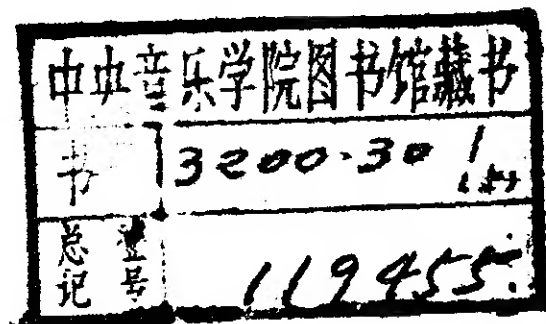 中央音乐学院图书馆藏书
书 3200·30 1
总登
记号 119455